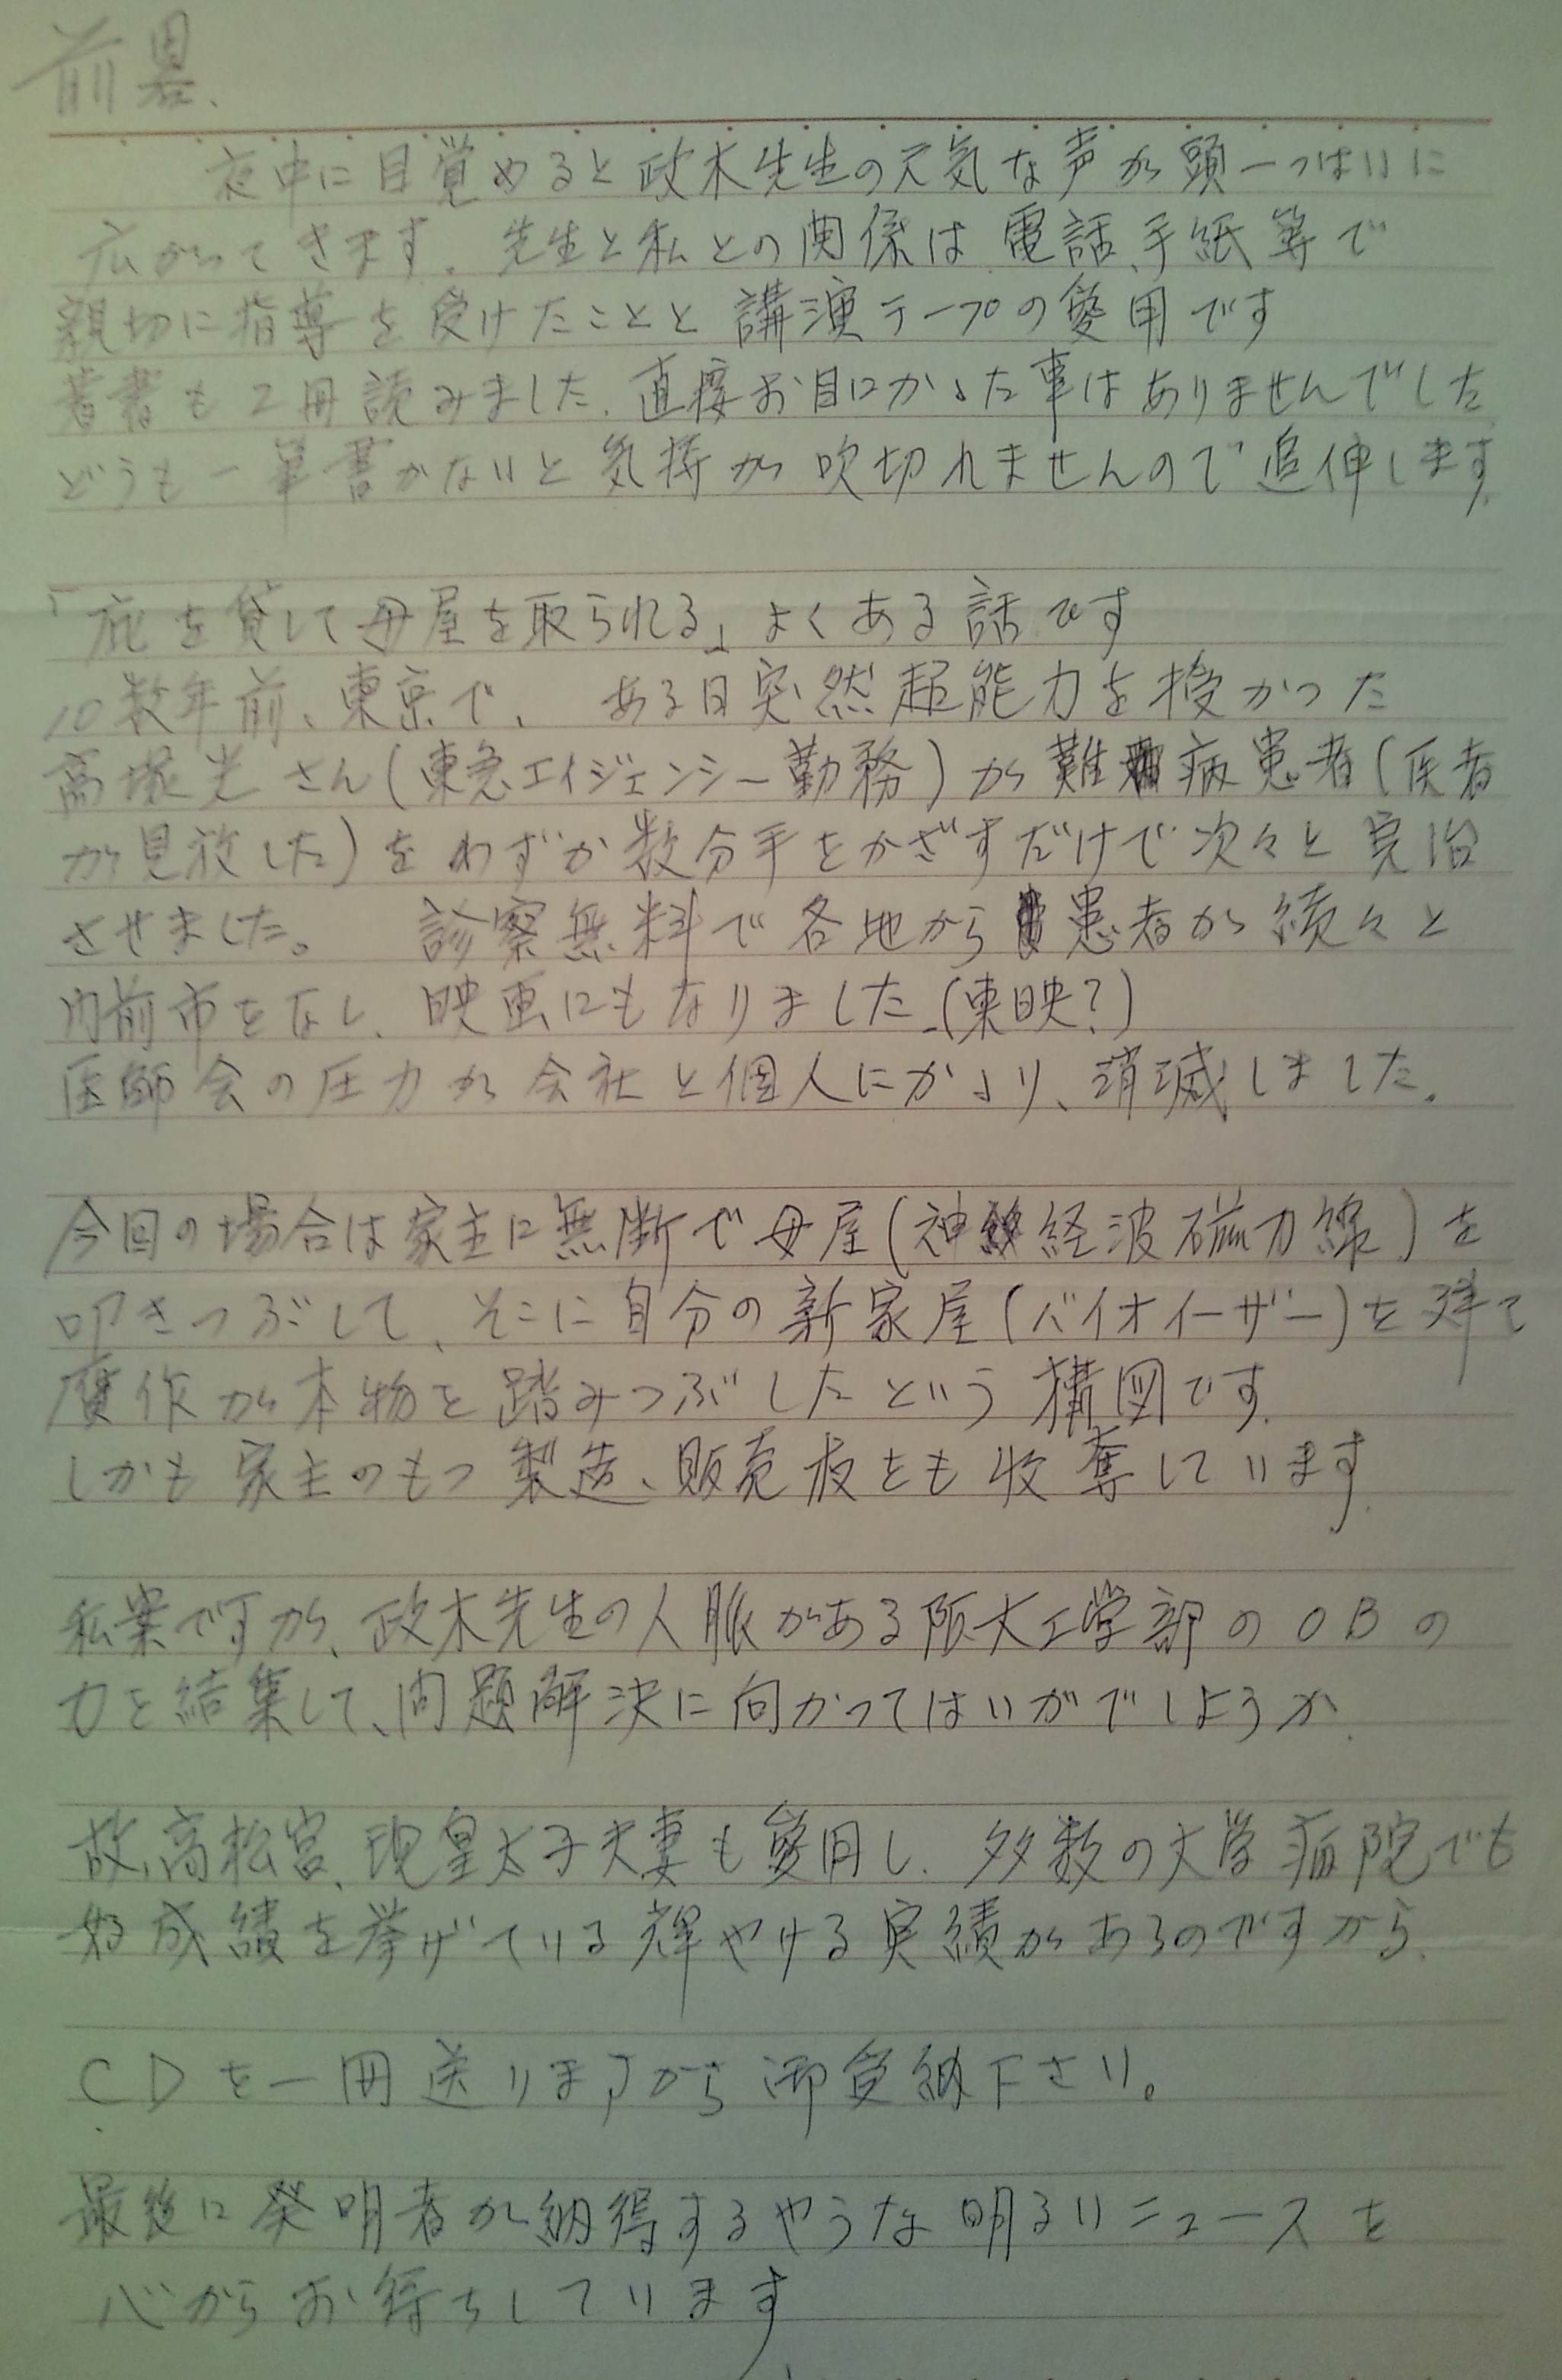 前畧、
夜中に目覚めると政木先生の元気な声が頭一っぱいに
広がってきます。先生と私との関係は電話、手紙等で
親切に指導を受けたことと講演テープの愛用です
著書も2冊読みました。直接お目にかゝった事はありませんでした
どうも一筆書かないと気持が吹切れませんので追伸します。
「庇を貸して母屋を取られる」よくある話です
10数年前、東京で、ある日突然超能力を授かった
高塚光さん(東急エイジェンシー勤務)が難病患者(医者
が見放した)をわずか数分手をかざすだけで次々と完治
させました。診察無料で各地から患者が続々と
門前市をなし、映画にもなりました。(東映?)
医師会の圧力が会社と個人にかゝり、消滅しました。
今回の場合は家主に無断で母屋(神経波磁力線)を
叩きつぶして、そこに自分の新家屋(バイオイーザー)を建て
贋作が本物を踏みつぶしたという構図です。
しかも家主のもつ製造、販売权をも收奪しています。
私案ですが、政木先生の人脈がある阪大工学部のOBの
力を結集して、問題解決に向かってはいがでしようか。
故、高松宮、現皇太子夫妻も愛用し、多数の大学病院でも
好成績を挙げている輝やける実績があるのですから。
CDを一冊送りますから御笑納下さい。
最後に発明者が納得するやうな明るいニュースを
心からお待ちしています